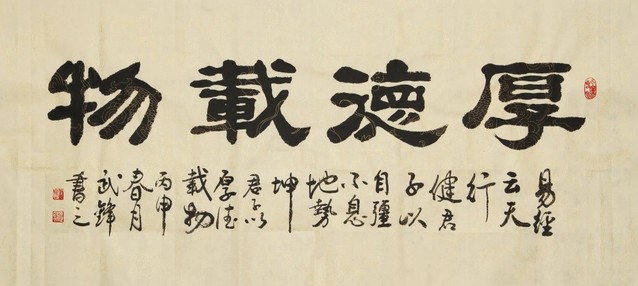 厚德載物
易經
云天
行
健君
子以
自彊
不息
地勢
坤
君子以
厚德
載物
丙申
春月
武鋒
書之